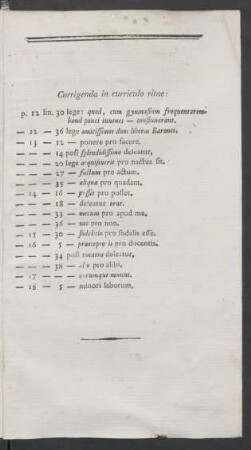 Corrigenda in curriculo vitae:
p. 12 lin. 30 lege: quod, cum gymnasium frequentarem
haud pauci iuuenes —
— 12 — 36 lege amicissimos duos liberos Barones.
— 13 — 12 — ponere pro facere.
— — — 14 post splendidissimo deleatur,
— — — 20 lege acquisuerit pro nactus sit.
— — — 27 — factum pro actum.
— — — 35 — aliqua pro quadam.
— 14 — 16 — possit pro posset.
— — — 18 — deleatur erat.
— — — 33 — mecum pro apud me.
— — — 36 — nec pro non.
— 15 — 30 — fidelibus pro fidelis esse.
— 16 — 5 — praeceptoris pro docentis.
— — — 34 post deleatur,
— — — 38 — pro alibi.
— 17 — — —
— 18 — 5 — minori laborum.